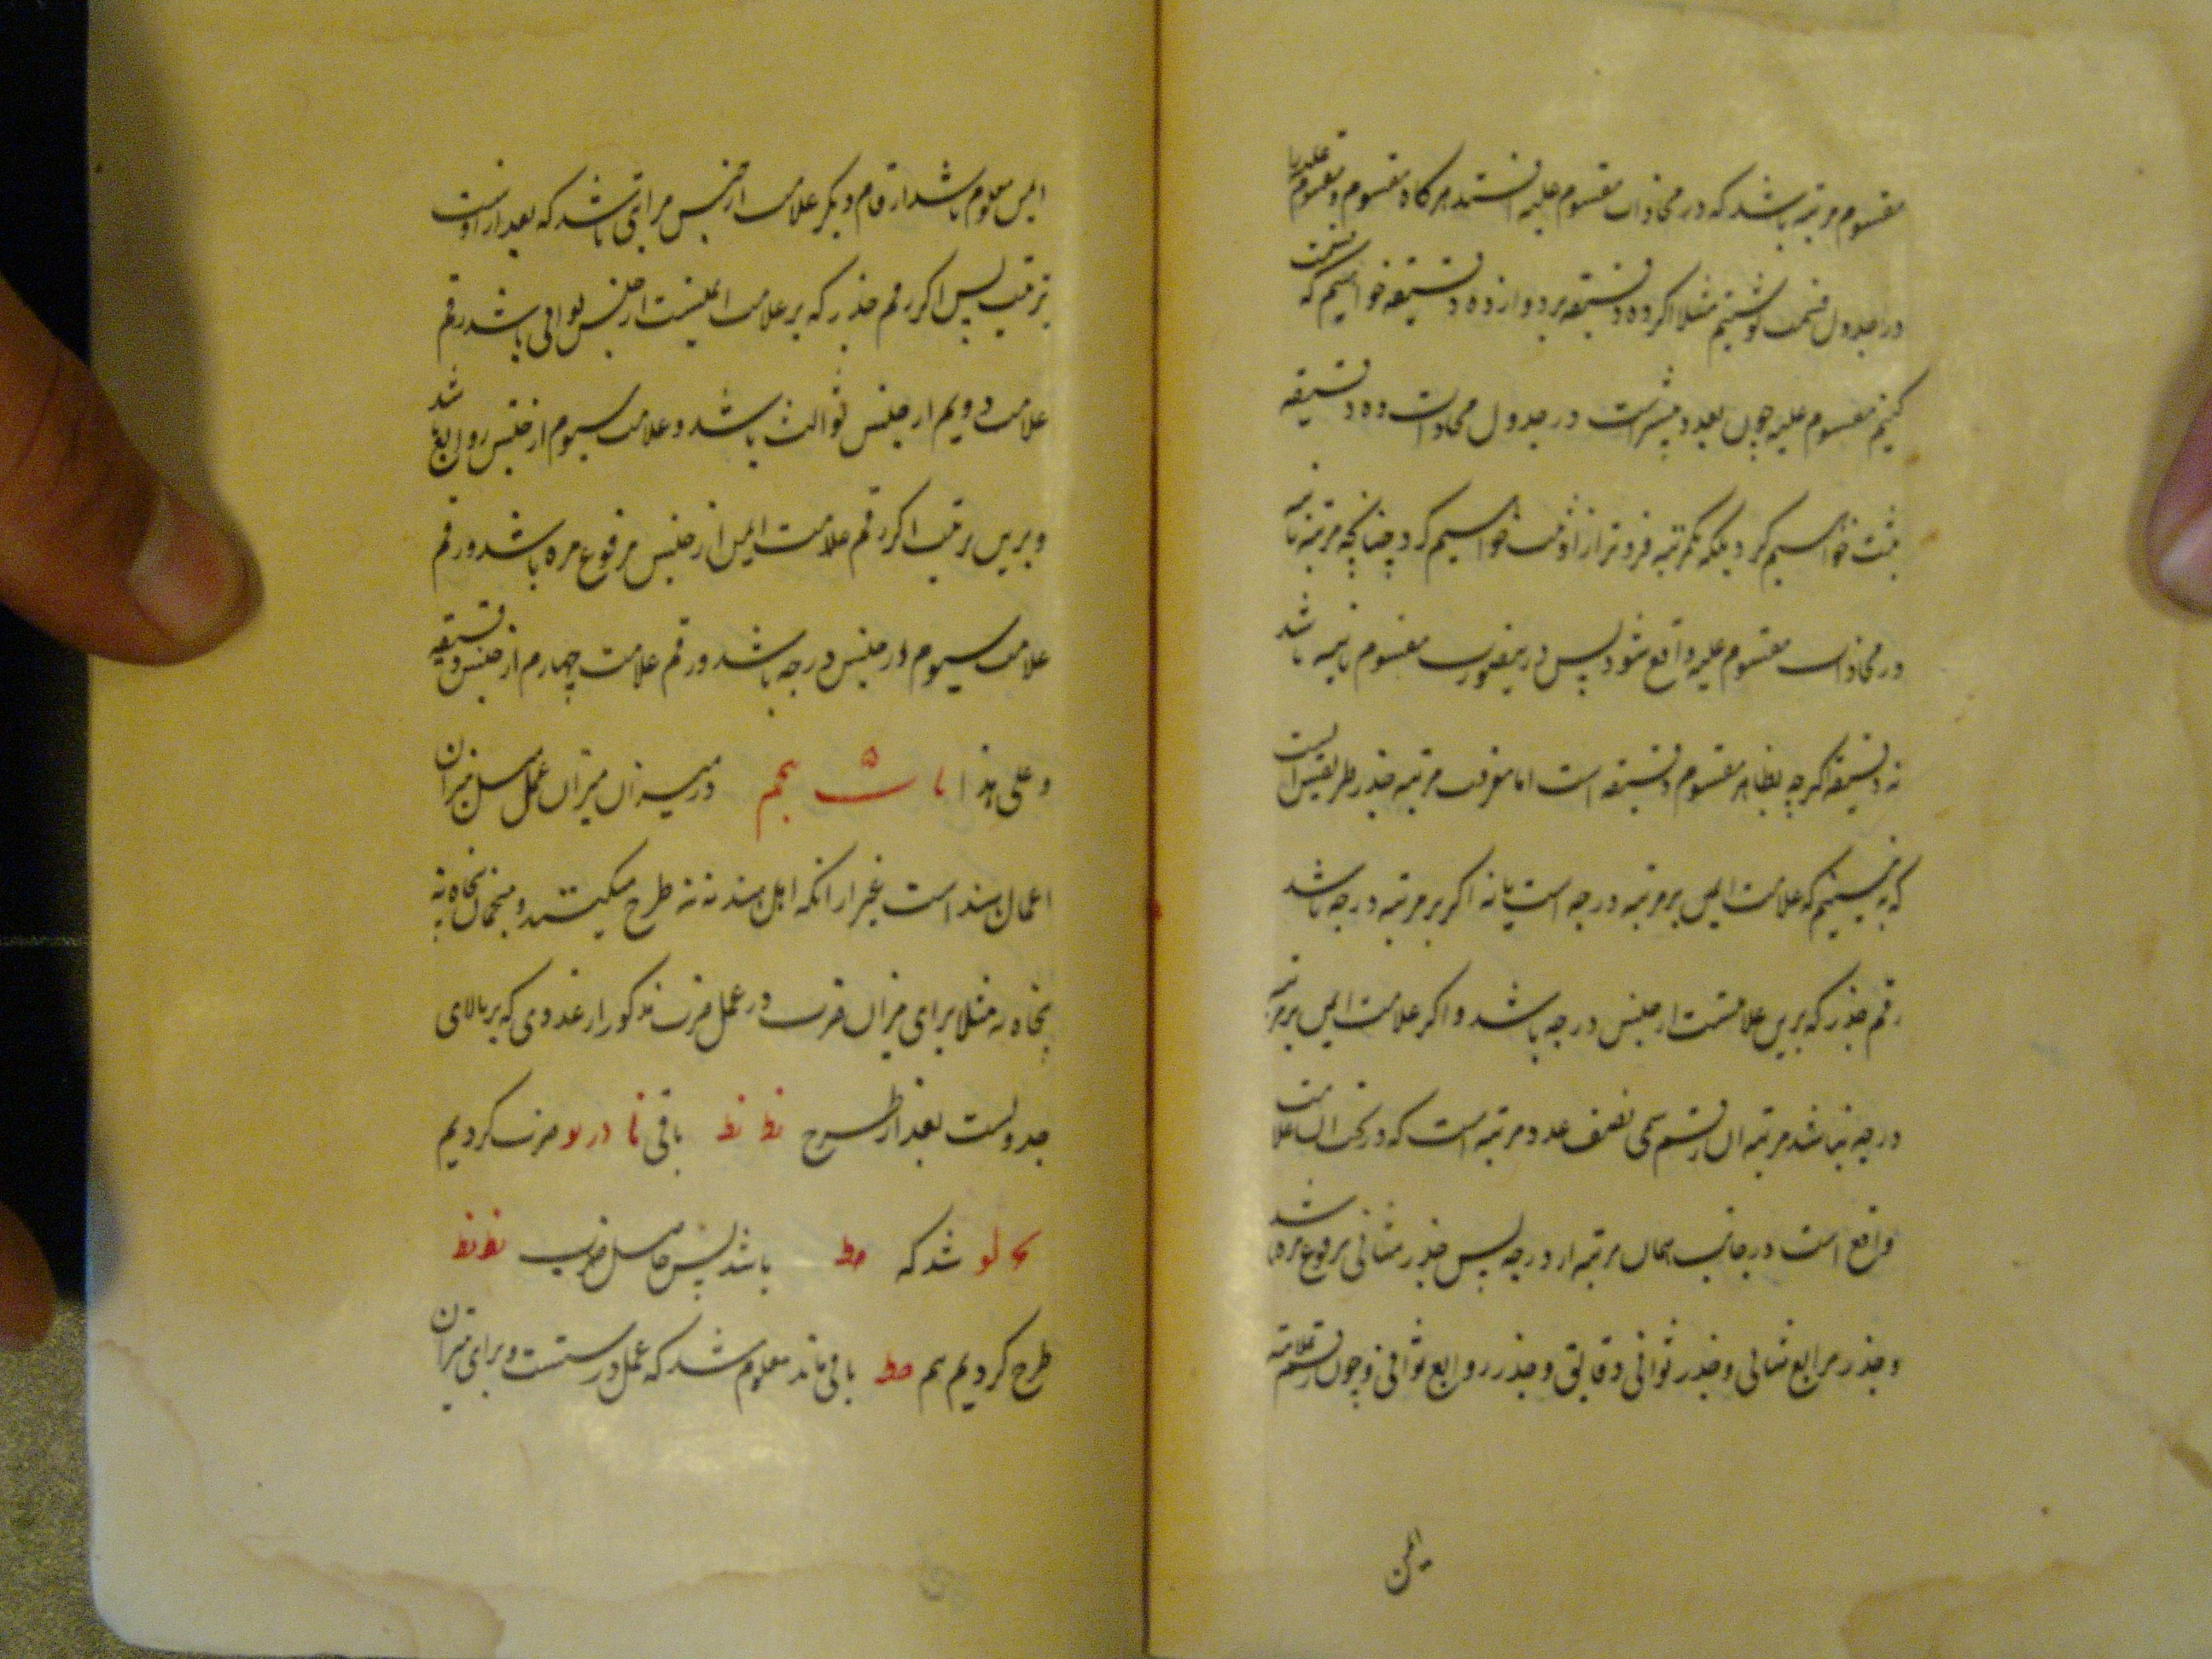 مقسوم مرتبه باشد که در محاذات مقسوم علیه افتد هرگاه مقسوم و مقسوم علیه را
در جدول قسمت نوشتیم مثلا اگر ده دقیقه بر دوازده دقیقه خواهیم که قسمت
کنیم مقسوم علیه چون بعدد بیشتر است در جدول محاذات ده دقیقه
مثبت خواهیم کرد بلکه بمرتبه فروتر از او مثبت خواهیم کرد چنانچه مرتبه ثانیه
در محاذات مقسوم علیه واقع شود پس درینصورت مقسوم ثانیه باشد
نه دقیقه اگرچه بظاهر مقسوم دقیقه است اما معرفت مرتبه جذر طریقش انست
که به بینیم که علامت ایمن بر مرتبه درجه است یا نه اگر بر مرتبه درجه باشد
رقم جذر که برین علامتست از جنس درجه باشد و اگر علامت ایمن بر مرتبه
درجه نباشد مرتبه آن رقم نصف عدد مرتبه است که در تحت آن علامت
واقع است در جانب همان مرتبه از درجه پس جذر مثانی مرفوع مره باشد
و جذر مرابع مثانی و جذر ثوانی دقایق و جذر روابع ثوانی و چون رقم علامت
ایمن
ایمن معلوم باشد ارقام دیگر علامت از جنس مراتبی باشد که بعد از اوست
بترتیب پس اگر رقم جذر که بر علامت ایمنست از جنس ثوانی باشد رقم
علامت دویم از جنس ثوالث باشد و علامت سیوم از جنس روابع باشد
و برین ترتیب اگر رقم علامت ایمن از جنس مرفوع مره باشد و رقم
علامت سیوم از جنس درجه باشد و رقم علامت چهارم از جنس دقیقه
و علی هذا باب پنجم در میزان میزان عمل مثل میزان
اعمال هند است غیر از آنکه اهل هند نه نه طرح میکنند و منجمان پنجاه نه
پنجاه نه مثلا برای میزان ضرب در عمل ضرب مذکور از عددی که بر بالای
جدولست بعد از طرح نط نط باقی نا در نو ضرب کردیم
شد که مط باشد پس حاصل ضرب نط نط
طرح کردیم هم مط باقی ماند معلوم شد که عمل درستست و برای میزان